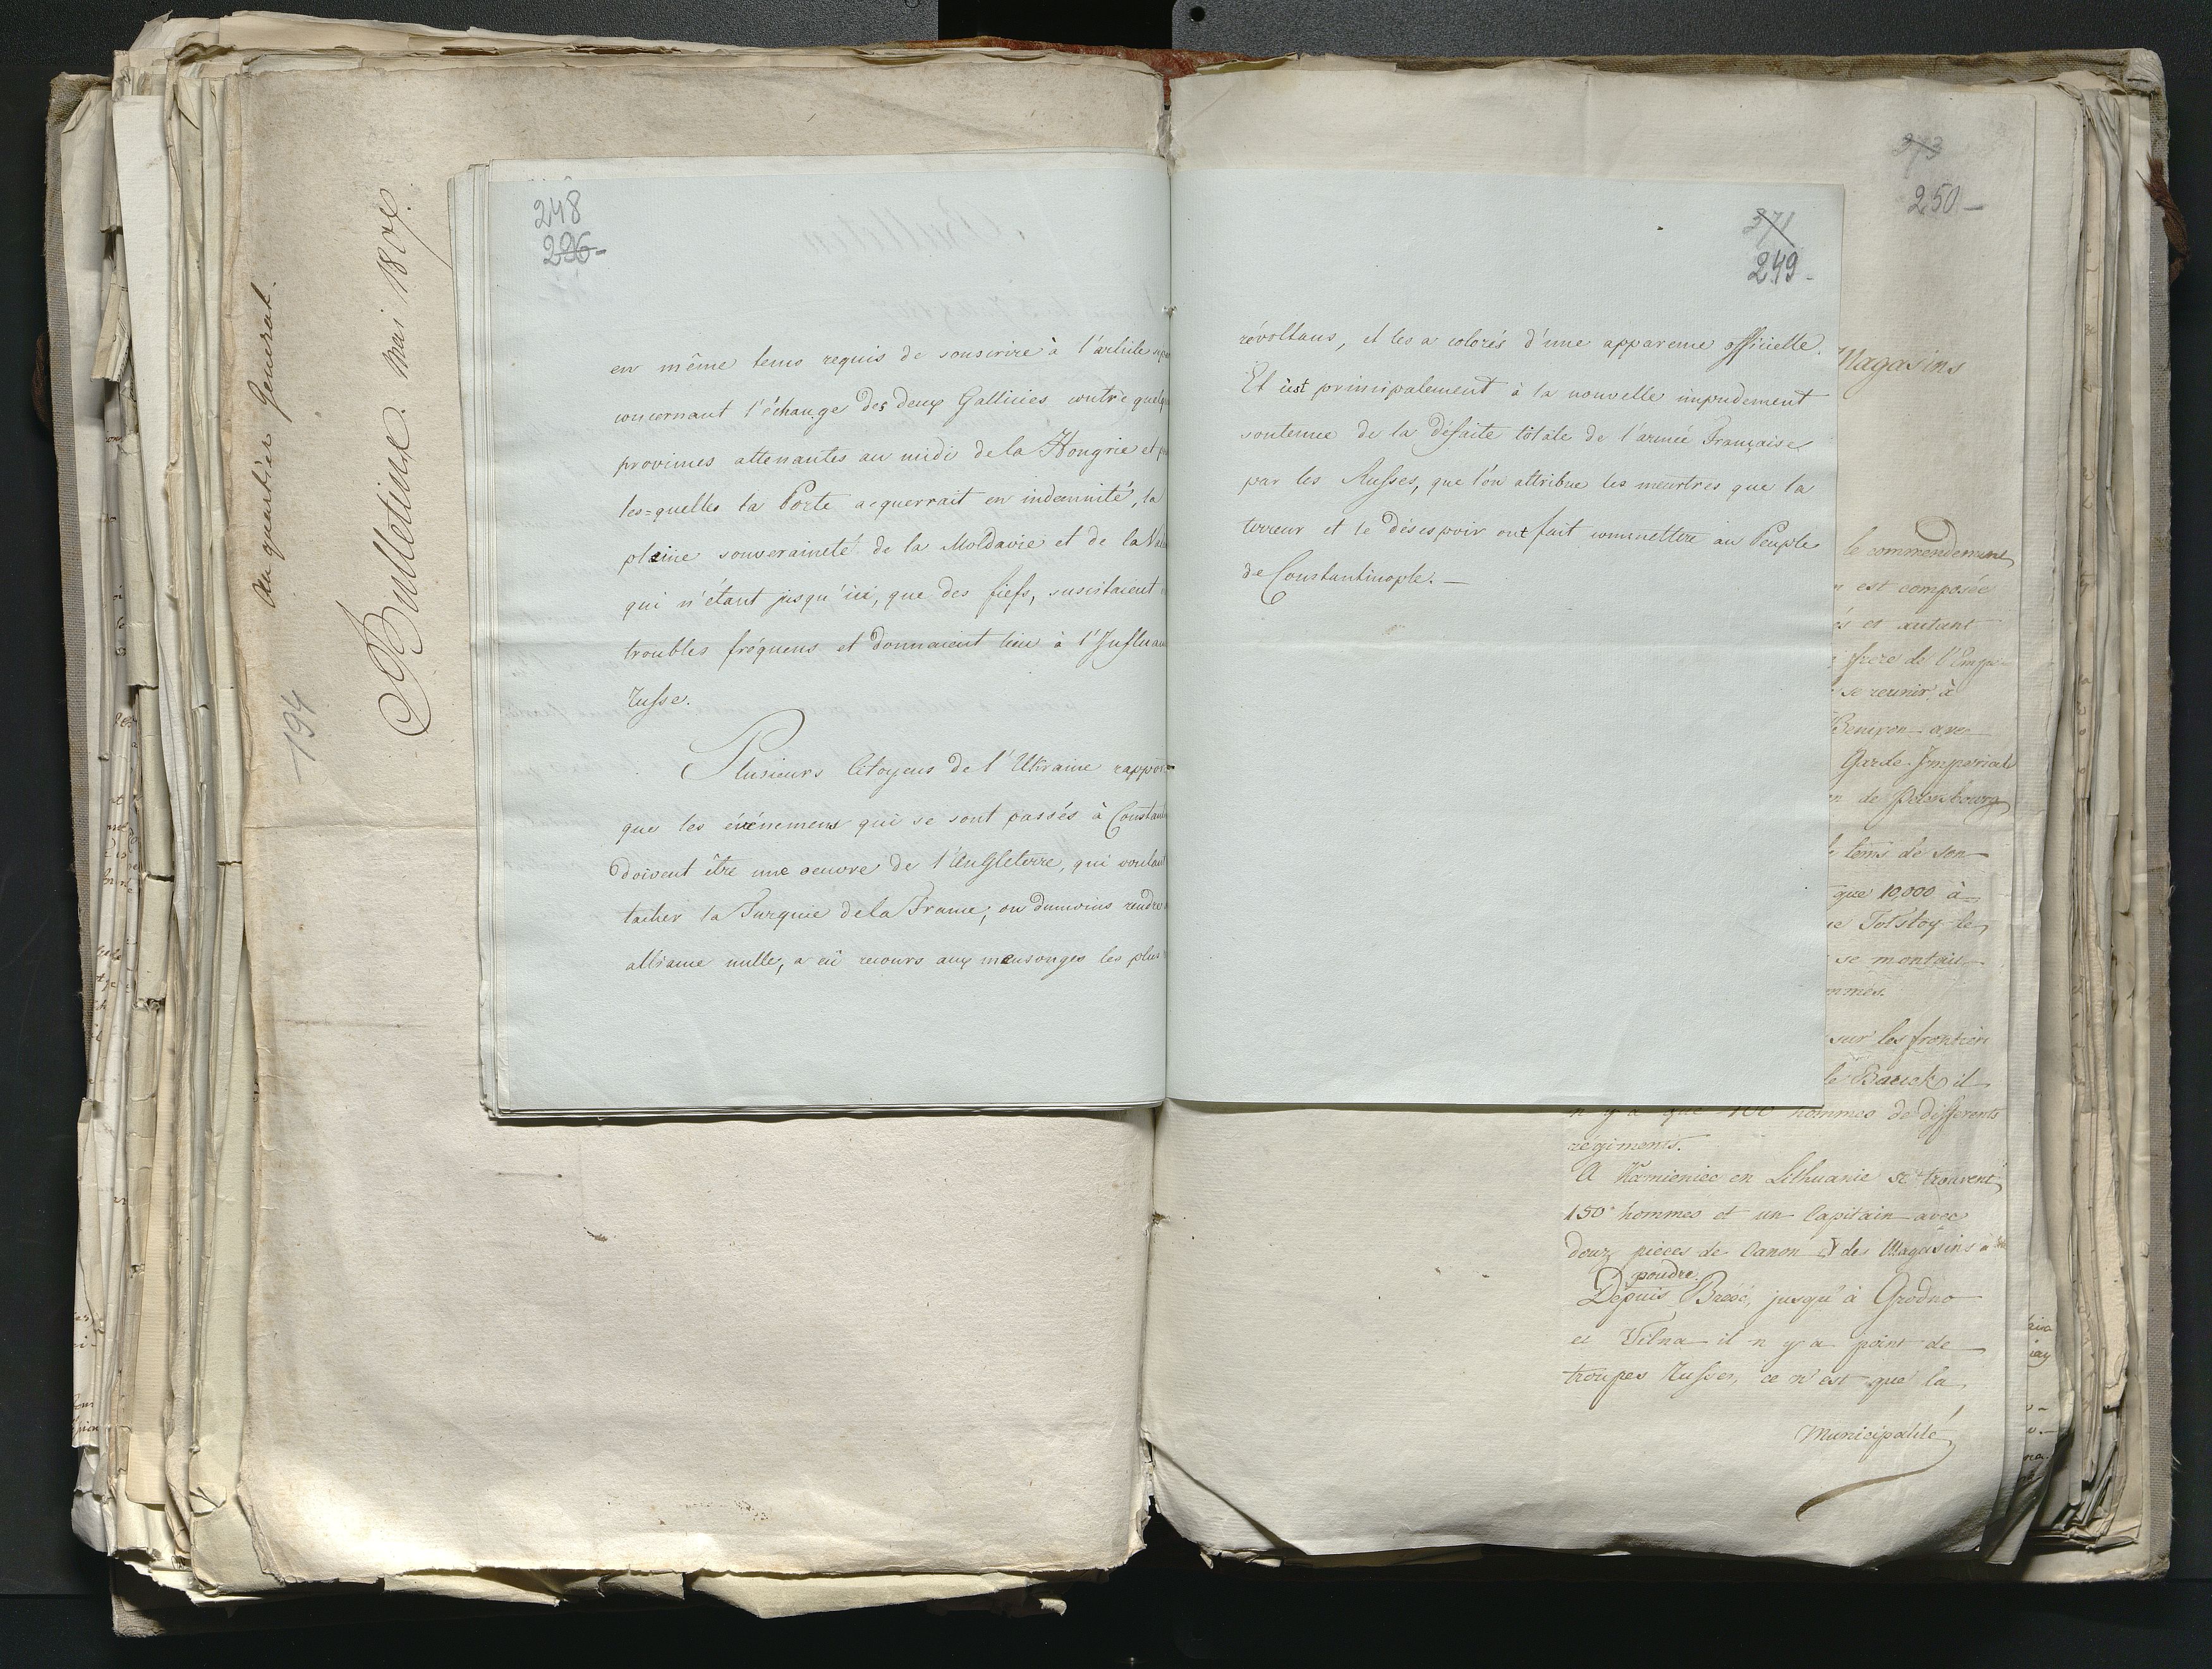 au quartier General.
Bulletins. Mai 1807.
194
248
296-
en même tems requis de souscrire à l'article
concernant l'échange des deux Gallicies contre
provinces attenantes au midi de la Hongrie et
les=quelles la Porte acquerrait en indemnité, la
pleine souveraineté de la Moldavie et de la
qui n'étant jusqu'ici, que des fiefs, suscitaient
troubles fréquens et donnaient lieu à l'Influan
russe.
Plusieurs Citoyens de l'Ukraine rappor=
que les événemens qui se sont passés à Constan
doivent être une oeuvre de l'Angleterre, qui voulant
tacher la Turquie de la France, ou dumoins rendre
alliance nulle, a eû recours aux mensonges les plus
371
249-
révoltans, et les a colorés d'une apparence officielle.
Et c'est principalement à la nouvelle impudement
soutenue de la défaite totale de l'armée Française
par les Russes, que l'on attribue les meurtres que la
terreur et le désespoir ont fait commettre au Peuple
de Constantinople. —
373
250-
Magasins
le commendement
est composée
és et autant
frere de l'Empe-
se reunir à
Benixen avec
Garde Imperiale
en de Petersbourg
tems de son
que 10,000 à
Tolstoy le
se montais
mmes.
sur les frontier
il
n y a que 100 hommes de differents
regiments.
A Kamieniec en Lithuanie se trouvent
150 hommes et un Capitain avec
deux pieces de Canon et des Magasins a
poudre.
Depuis Bresc, jusqu'à Grodno
et Vilna il n y a point de
troupes Russes, ce n'est que la
Municipalité